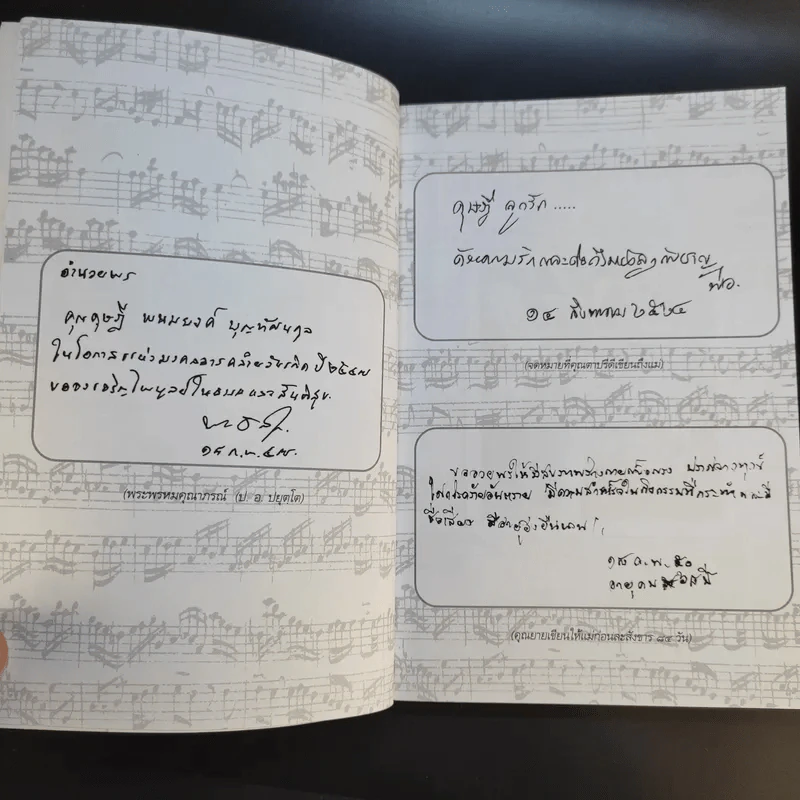 อำนวยพร
คุณดุษฎี พนมยงค์ บุญทัศนกุล
ในโอกาสแห่งมงคลวารคล้ายวันเกิด ปี ๒๕๔๗
ขอจงเจริญไพบูลย์ในธรรมและสันติสุข
๑๘ ก.พ. ๔๗.
(พระพรหมคุณาภรณ์ (ป. อ. ปยุตโต)
ดุษฎี ลูกรัก .....
ด้วยความรักและคิดถึง
พ่อ.
๑๔ สิงหาคม ๒๕๒๔
(จดหมายที่คุณตาปรีดีเขียนถึงแม่)
ขออวยพรให้มีสุขภาพร่างกายแข็งแรง ปราศจากทุกข์
โศกโรคภัยอันตราย มีความสำเร็จในกิจกรรมที่กระทำ
ชื่อเสียง มีอายุยั่งยืนนาน
๑๘ ก.พ. ๕๐
(คุณยายเขียนให้แม่ก่อนละสังขาร ๘๔ วัน)